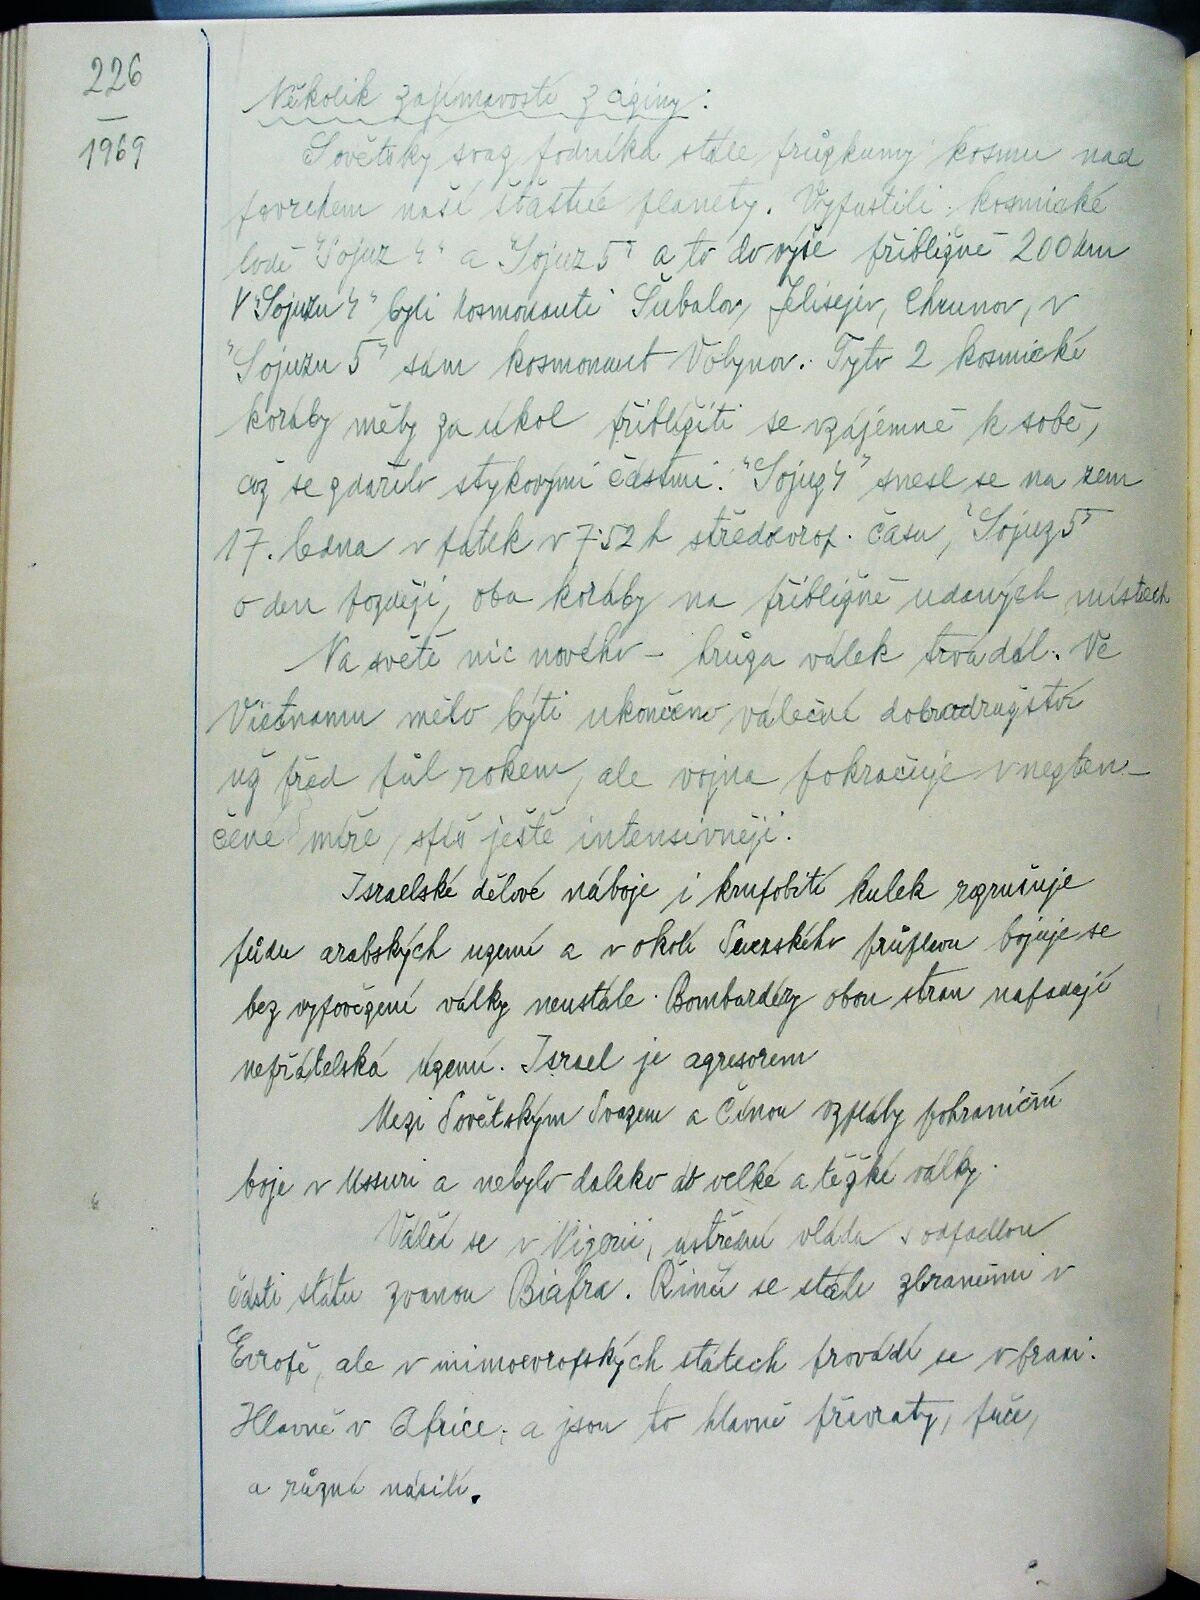 226
1969
Několik zajímavostí z ciziny:
Sovětský svaz podniká stále průzkumy kosmu nad
povrchem naší šťastné planety. Vypustili kosmické
lodě "Sojuz 4" a "Sojuz 5" a to do výše přibližně 200 km
V "Sojuzu 4" byli kosmonauti Šubalov, Jelisejev, Chrunov, v
"Sojuzu 5" sám kosmonaut Volynov. Tyto 2 kosmické
koráby měly za úkol přiblížiti se vzájemně k sobě,
což se zdařilo stykovými částmi. "Sojuz 4" snesl se na zem
17. ledna v pátek v 7.52 h středoevrop. času, "Sojuz 5"
o den později, oba koráby na přibližně udaných místech
Na světě nic nového – hrůza válek trvá dál. Ve
Vietnamu mělo býti ukončeno válečné dobrodružství
už před půl rokem, ale vojna pokračuje v nezten-
čené míře, spíš ještě intensivněji.
Israelské dělové náboje i krupobití kulek rozrušuje
půdu arabských území a v okolí Suezského průplavu bojuje se
bez vypovězení války neustále. Bombardéry obou stran napadají
nepřátelská území. Israel je agresorem
Mezi Sovětským Svazem a Čínou vzplály pohraniční
boje v Ussuri a nebylo daleko do velké a těžké války.
Válčí se v Nigerii, ústřední vláda s odpadlou
částí státu zvanou Biafra. Řinčí se stále zbraněmi v
Evropě, ale v mimoevropských státech provádí se v praxi.
Hlavně v Africe; a jsou to hlavně převraty, puče,
a různá násilí.